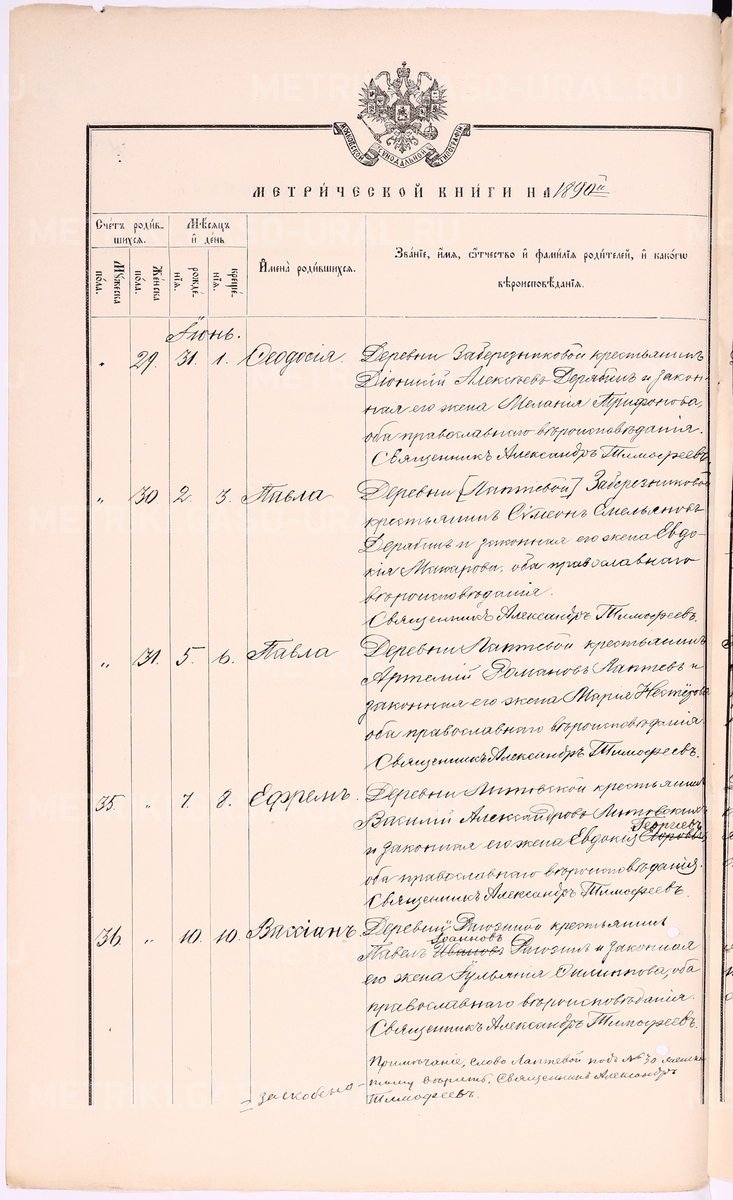 МОСКОВСКОЙ СИНОДАЛЬНОЙ ТИПОГРАФІИ
МЕТРИ́ЧЕСКОЙ КНИ́ГИ НА 1890й
Сче́тъ роди́в-
шихся.
Мѣ́сяцъ
и҆ де́нь
Мꙋ́жеска
по́ла.
Же́нска
по́ла.
рожде́-
нїѧ.
креще́-
нїѧ.
И҆мена̀ роди́вшихся.
Зва́нїе, и҆́мя, ѻ҆́тчество и҆ фами́лїя роди́телей, и҆ како́гѡ
вѣроисповѣ́данїя.
Іюнь.
„ 29. 31. 1. Ѳеодосія. Деревни Заберезниковой крестьянинъ
Діонисій Алексѣевъ Дерябинъ и закон-
ная его жена Меланія Трифонова,
оба православнаго вѣроисповѣданія.
Священникъ Александръ Тимофеевъ.
„ 30 2. 3. Павла Деревни [Лаптевой] Заберезниковой
крестьянинъ Сѵмеонъ Емельяновъ
Дерябинъ и законная его жена Евдо-
кія Макарова, оба православнаго
вѣроисповѣданія.
Священникъ Александръ Тимофеевъ.
„ 31. 5. 6. Павла Деревни Лаптевой крестьянинъ
Артемій Романовъ Лаптевъ и
законная его жена Марія Нестерова
оба православнаго вѣроисповѣданія.
Священникъ Александръ Тимофеевъ.
35. „ 7. 8. Ефремъ. Деревни Литовской крестьянинъ
Василій Александровъ Литовскихъ
Георгіевъ
и законная его жена Евдокія
оба православнаго вѣроисповѣданія.
Священникъ Александръ Тимофеевъ.
36. „ 10. 10. Вассіанъ. Деревни крестьянинъ
Іоанновъ
Павелъ Ивановъ и законная
его жена Гульянія Филиппова, оба
православнаго вѣроисповѣданія.
Священникъ Александръ Тимофеевъ.
Примѣчаніе, слово Лаптевой подъ № 30
= заскобено - Священникъ Александръ
Тимофеевъ.
METRIKI.GASO-URAL.RU